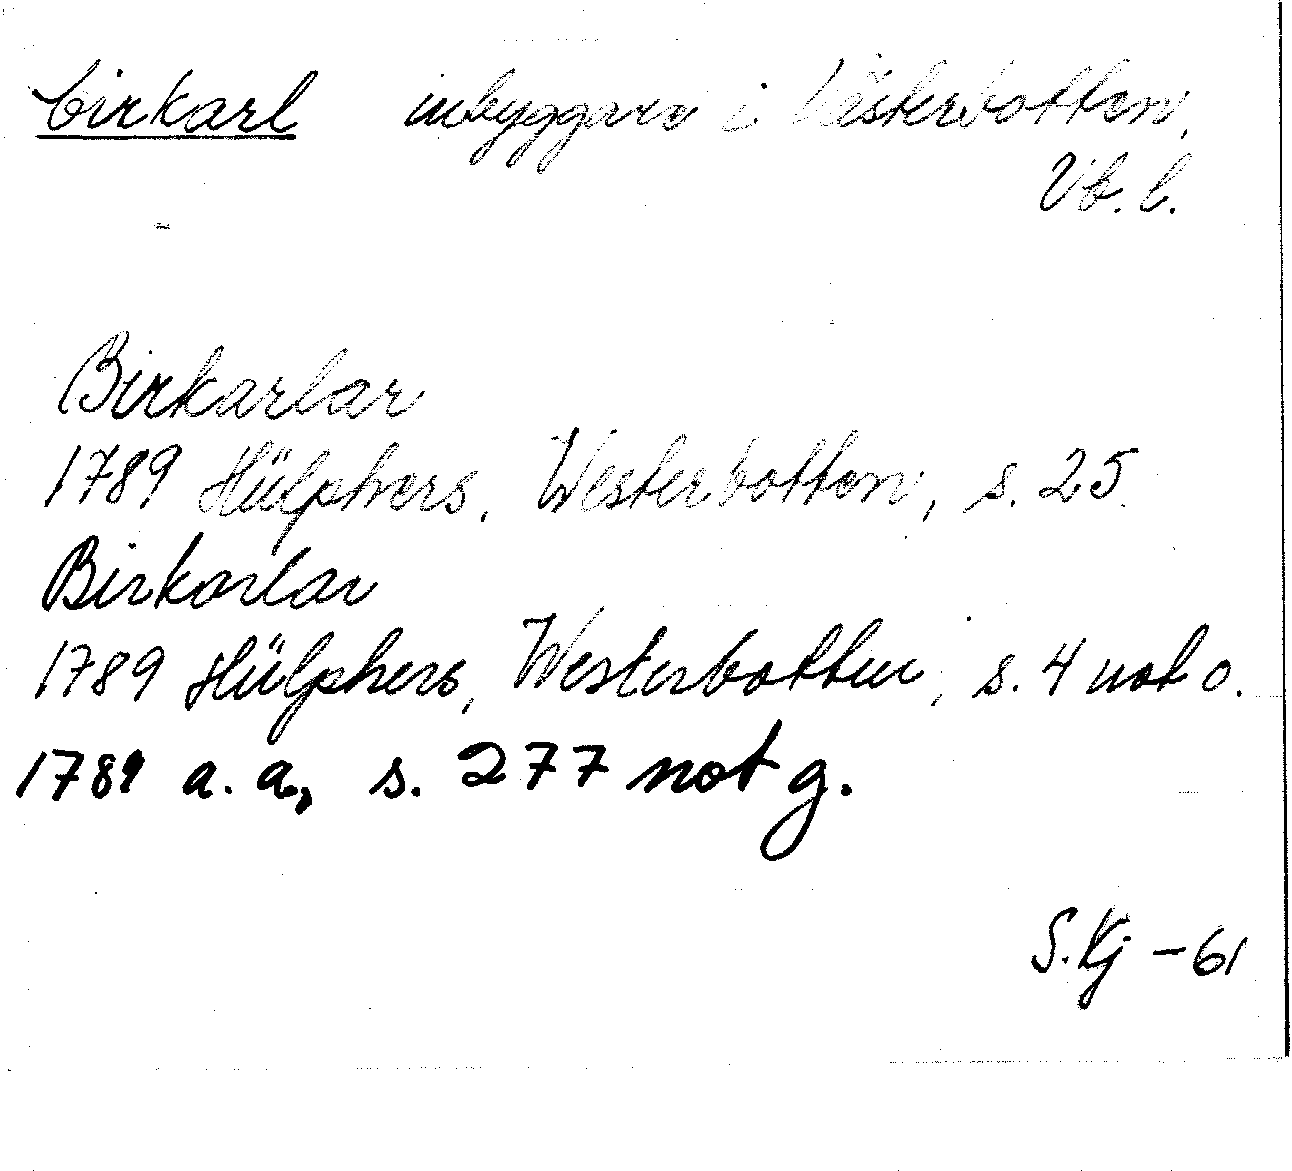 birkarl inbyggare i Västerbotten,
Vb. l.
Birkarlar
1789 Hülphers, Westerbotten, s. 25.
Birkarlar
1789 Hülphers, Westerbotten, s. 4 not o.
1789 a. a., s. 277 not g.
S. Kj -61